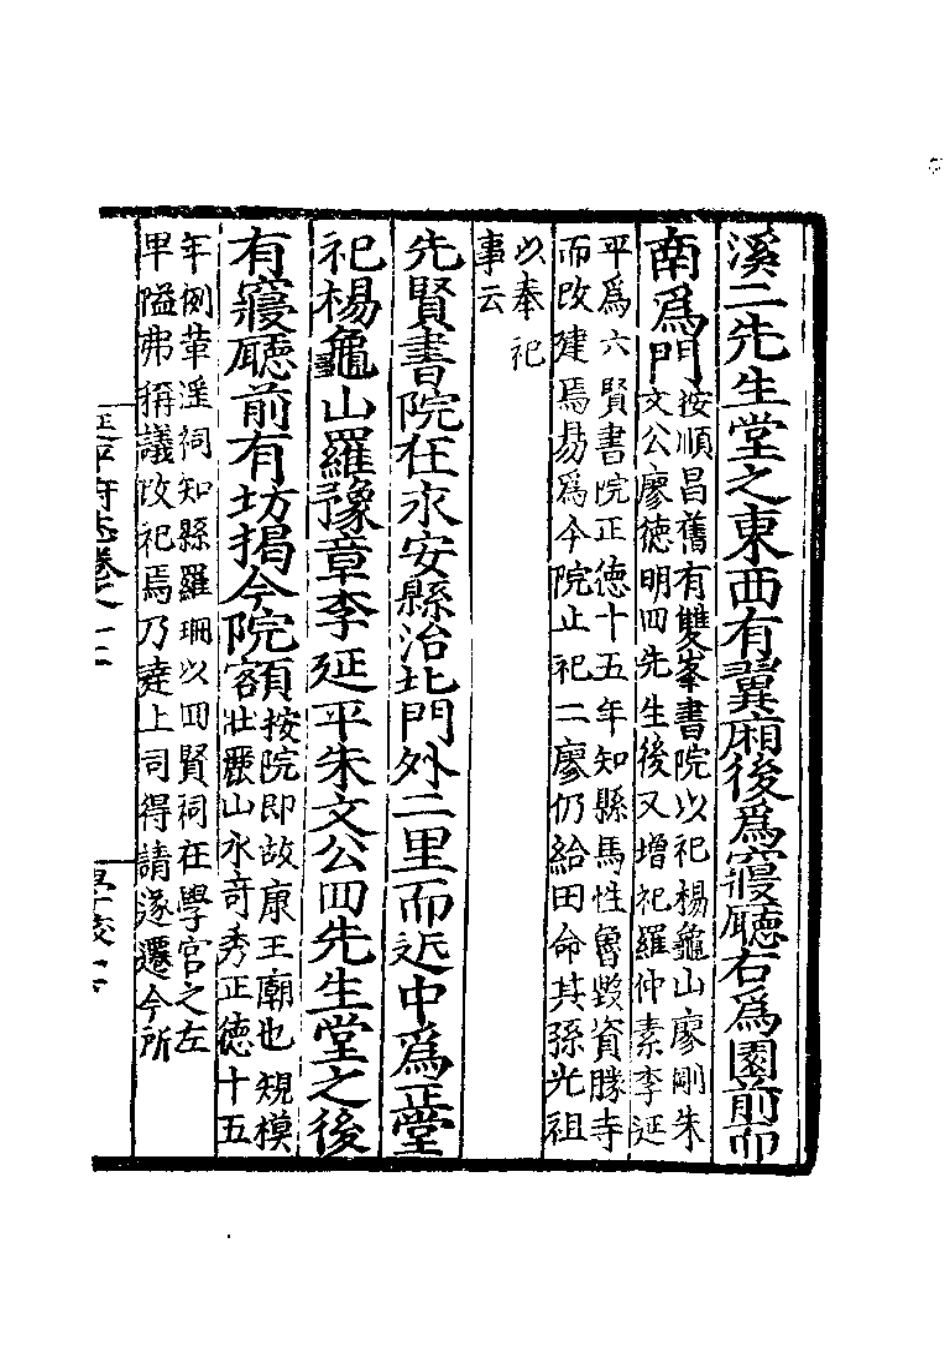 溪二先生堂之東西有翼廂後爲寢廳右爲園前而
南爲門
按順昌舊有雙峯書院以祀楊龜山廖剛朱
文公廖德明四先生後又增祀羅仲素李延
平爲六賢書院正德十五年知縣馬性魯毀資勝寺
而改建焉易爲今院止祀二廖仍給田命其孫光祖
以奉祀
事云
先賢書院在永安縣治北門外二里而近中爲正堂
祀楊龜山羅豫章李延平朱文公四先生堂之後
有寢廳前有坊揭今院額
按院即故康王廟也規模
窄壯麗山水奇秀正德十五
年例革淫祠知縣羅珊以四賢祠在學宮之左
卑隘弗稱議改祀焉乃達上司得請遂遷今所
延平府志卷之十二
學校